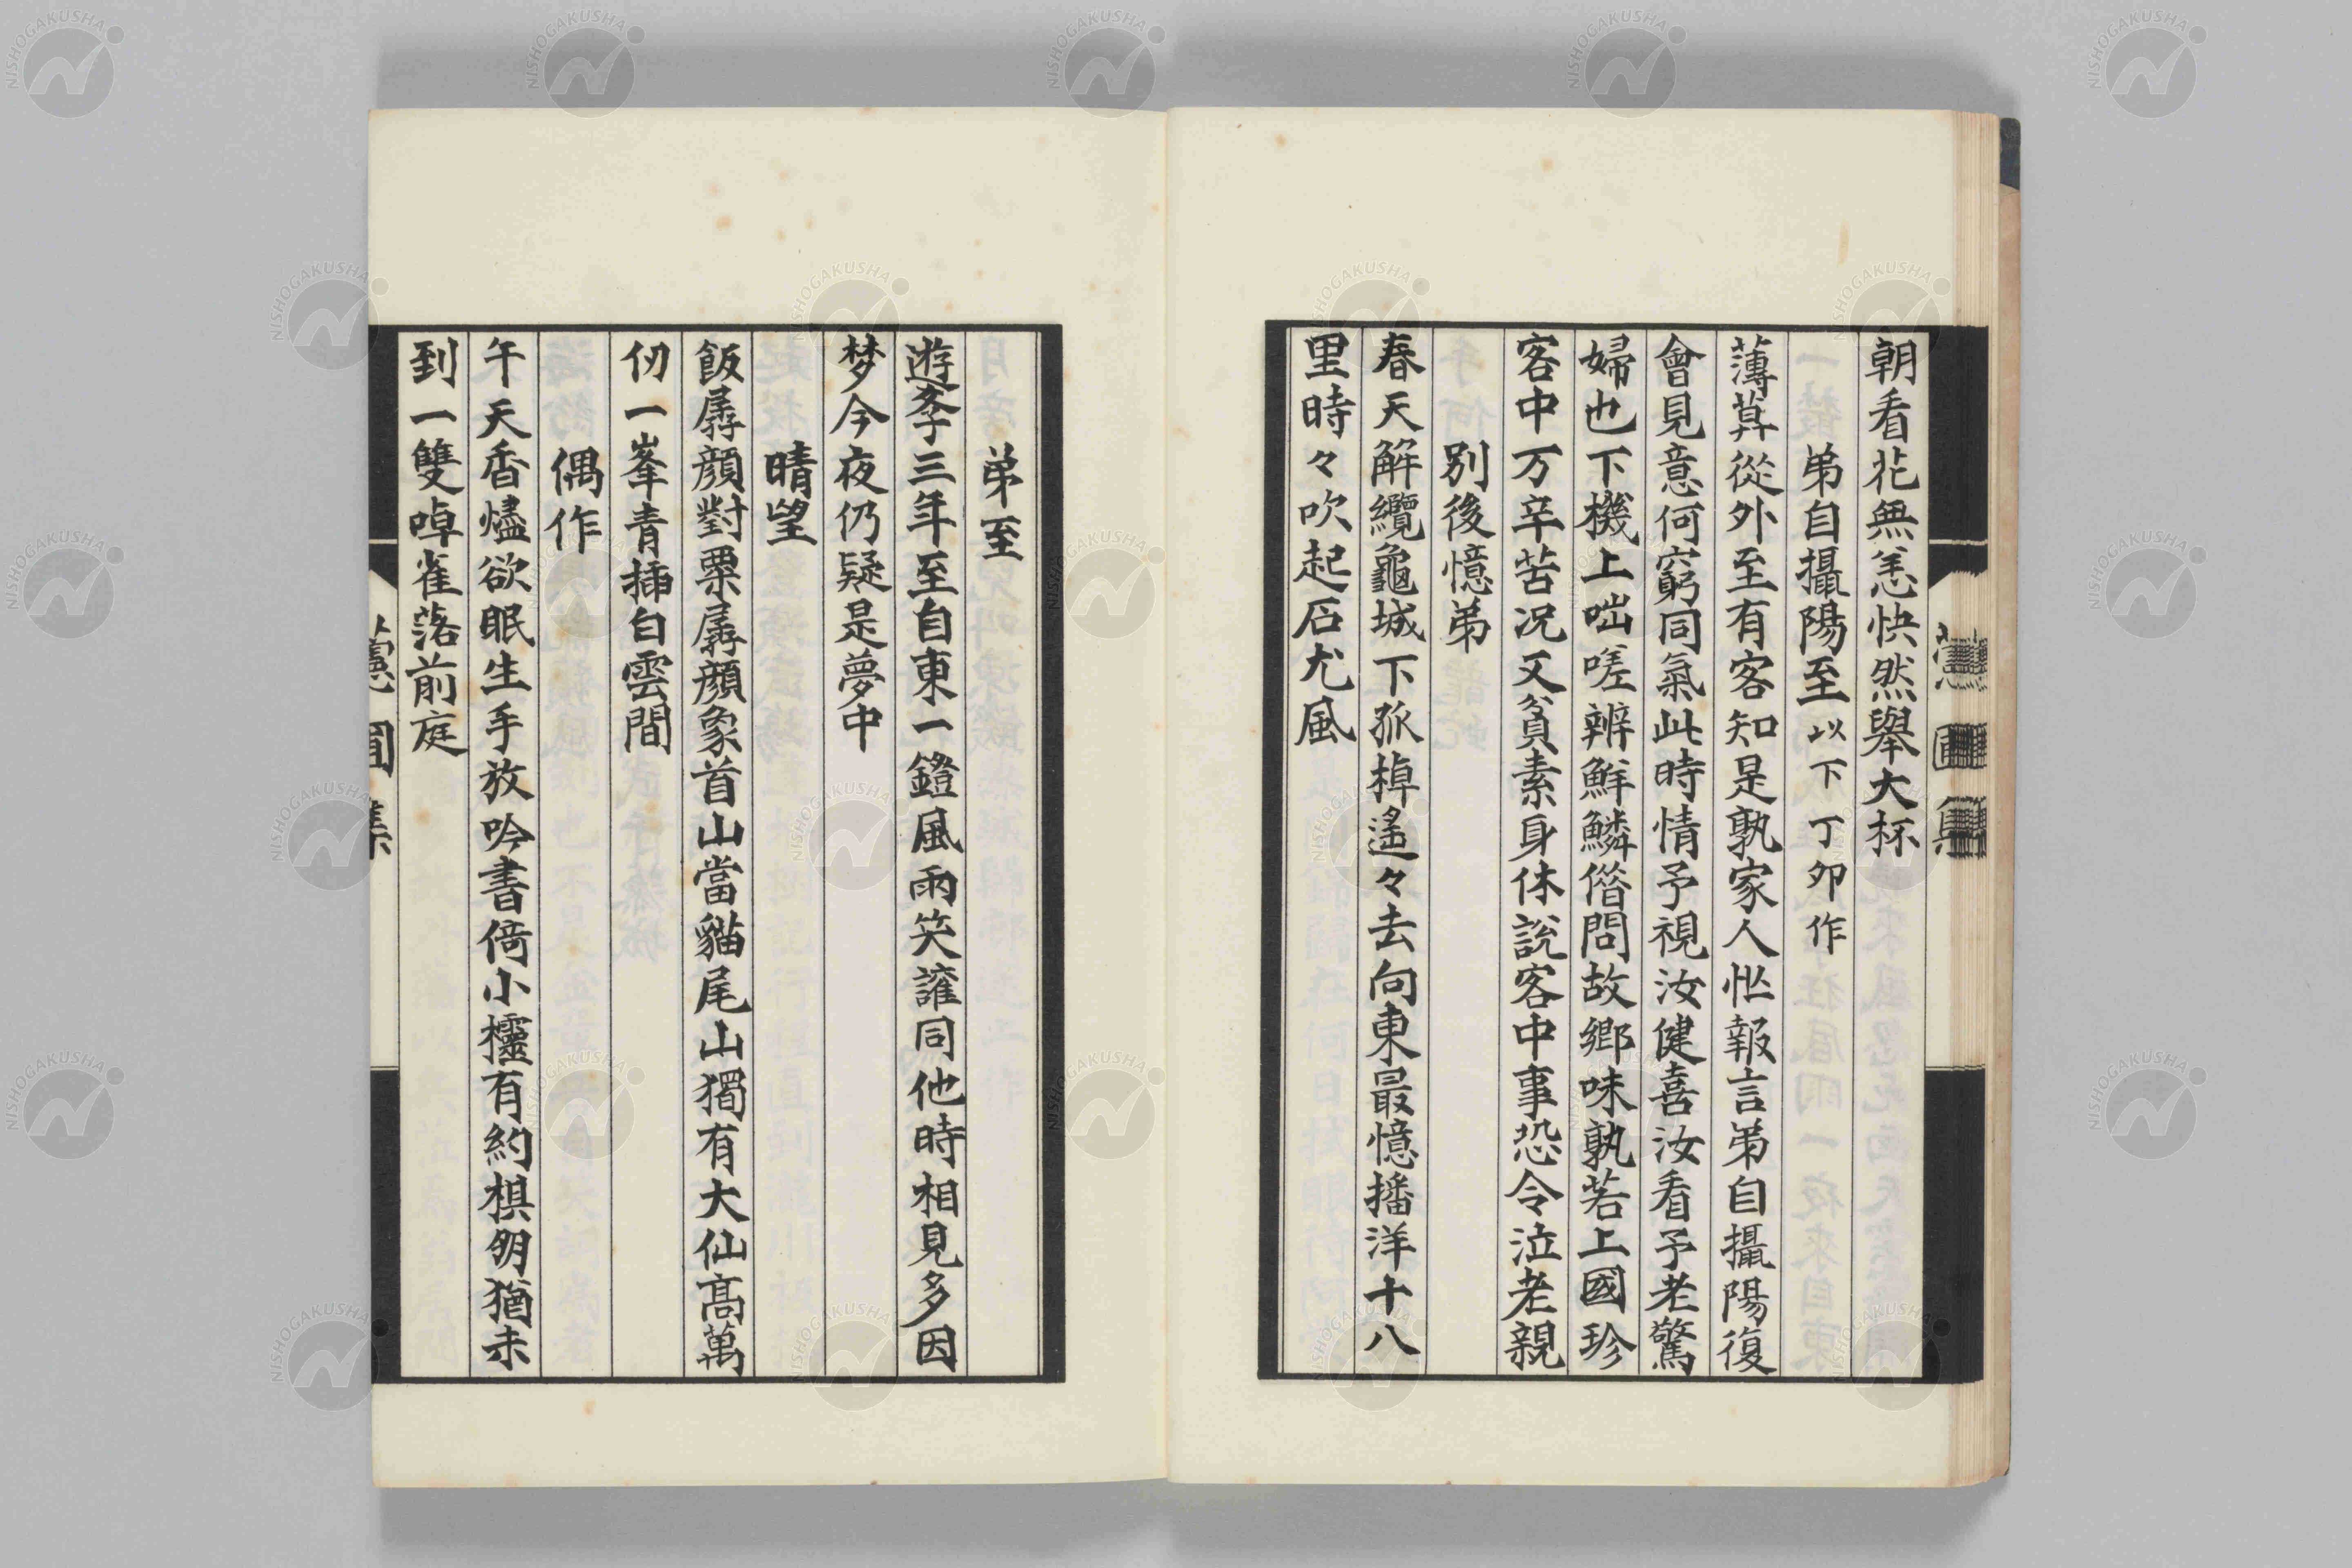 朝看花無恙快然舉大杯
弟自攝陽至以下丁卯作
薄莫從外至有客知是孰家人忙報言弟自攝陽復
會見意何窮同氣此時情予視汝健喜汝看予老驚
婦也下機上咄嗟辨鮮鱗偕問故鄉味孰若上國珍
客中万辛苦況又貧素身休說客中事恐令泣老親
別後憶弟
春天解纜龜城下孤棹遙々去向東最憶播洋十八
里時々吹起石尤風
弟至
遊學三年至自東一鐙風雨笑諠同他時相見多因
梦今夜仍疑是夢中
晴望
飯孱顏對栗孱顏象首山當貓尾山獨有大仙高萬
仞一峯青插白雲間
偶作
午天香燼欲眠生手放吟書倚小櫺有約棋朋猶未
到一雙啅雀落前庭
NISHOGAKUSHA